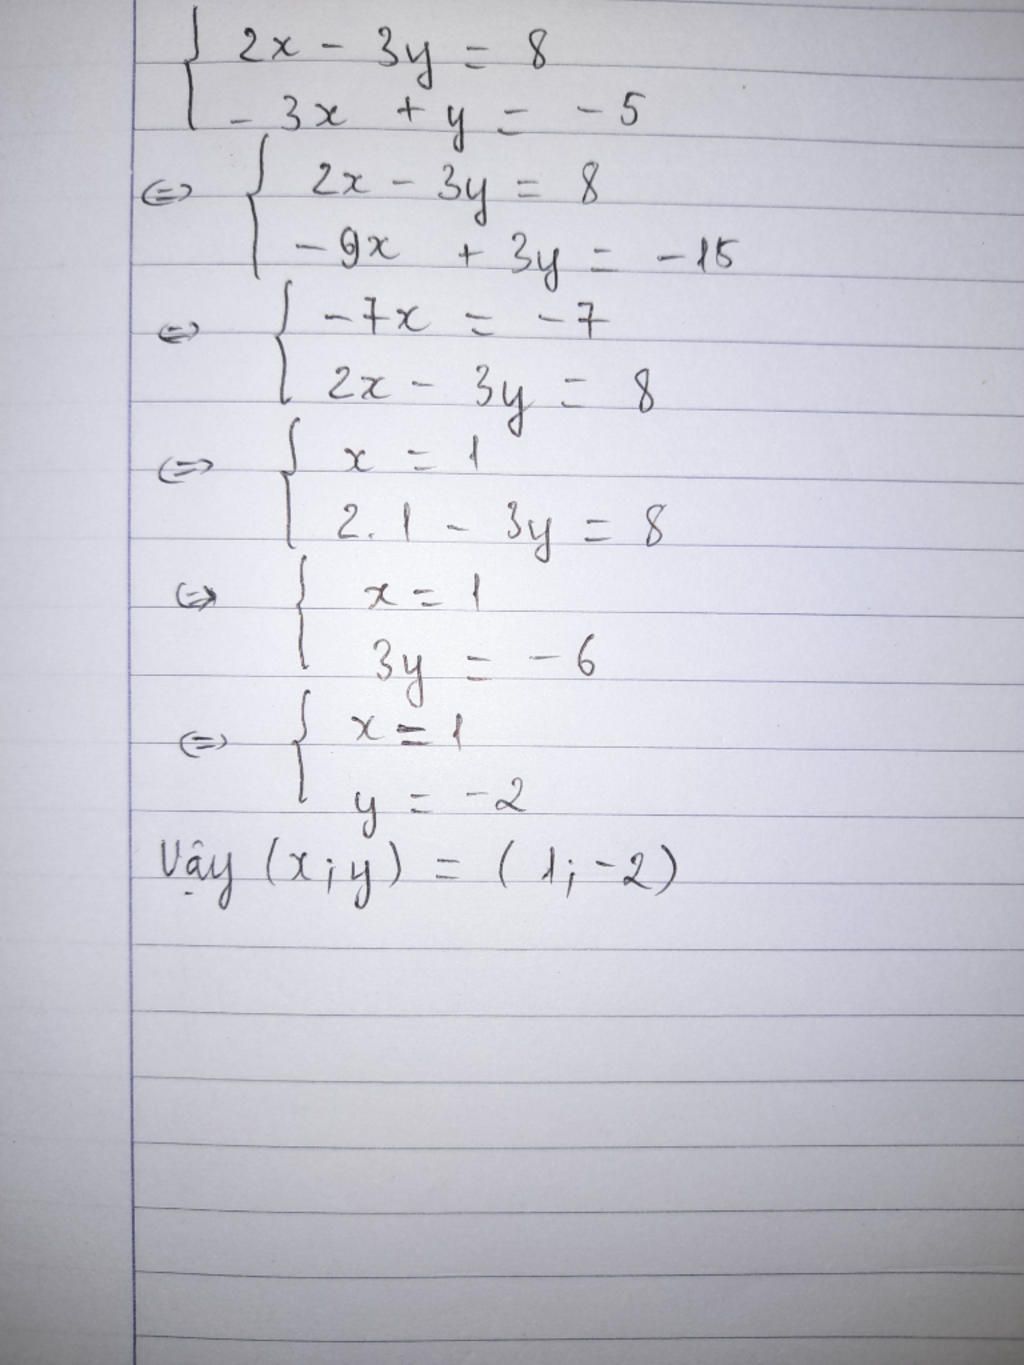 { 2x - 3y = 8
- 3x + y = - 5
⇔ { 2x - 3y = 8
- 9x + 3y = - 15
⇔ { - 7x = - 7
2x - 3y = 8
⇔ { x = 1
2.1 - 3y = 8
⇔ { x = 1
3y = - 6
⇔ { x = 1
y = - 2
Vậy (x;y) = (1;-2)